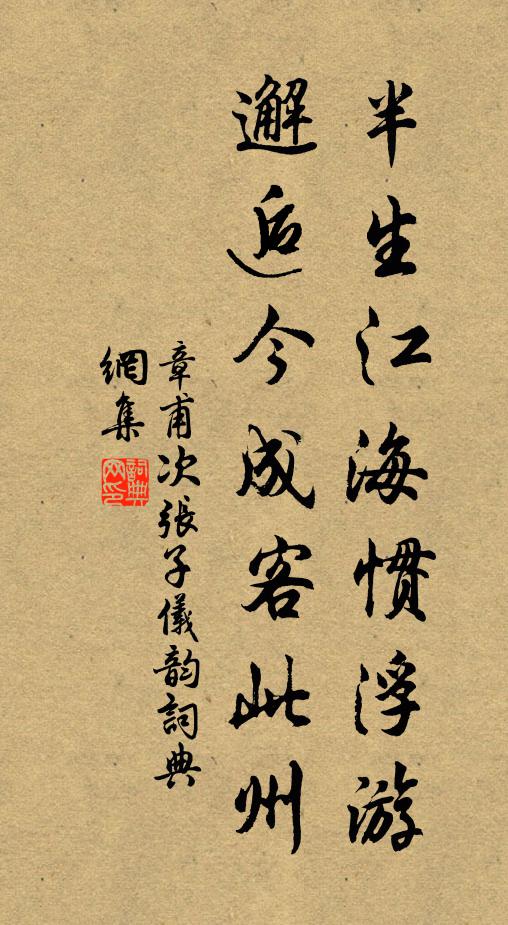 半生江海慣浮游
邂逅今成客此州
章甫次張子儀韵詞典
網集
詞典
网印